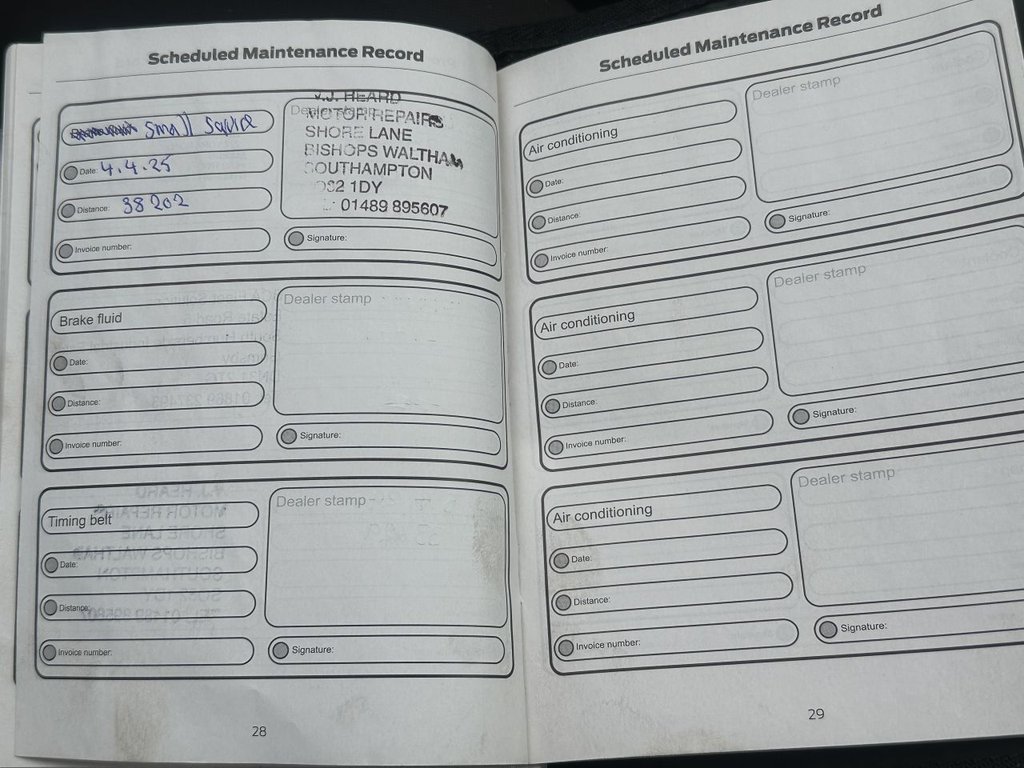 Scheduled Maintenance Record
small
Date: 4.4.25
Distance: 38202
Invoice number:
Dealer stamp
HEARD
MOTOR REPAIRS
SHORE LANE
BISHOPS WALTHAM
SOUTHAMPTON
1DY
01489 895607
Signature:
Brake fluid
Date:
Distance:
Invoice number:
Dealer stamp
Signature:
Timing belt
Date:
Distance:
Invoice number:
Dealer stamp
Signature:
28
Scheduled Maintenance Record
Air conditioning
Date:
Distance:
Invoice number:
Dealer stamp
Signature:
Air conditioning
Date:
Distance:
Invoice number:
Dealer stamp
Signature:
Air conditioning
Date:
Distance:
Invoice number:
Dealer stamp
Signature:
29